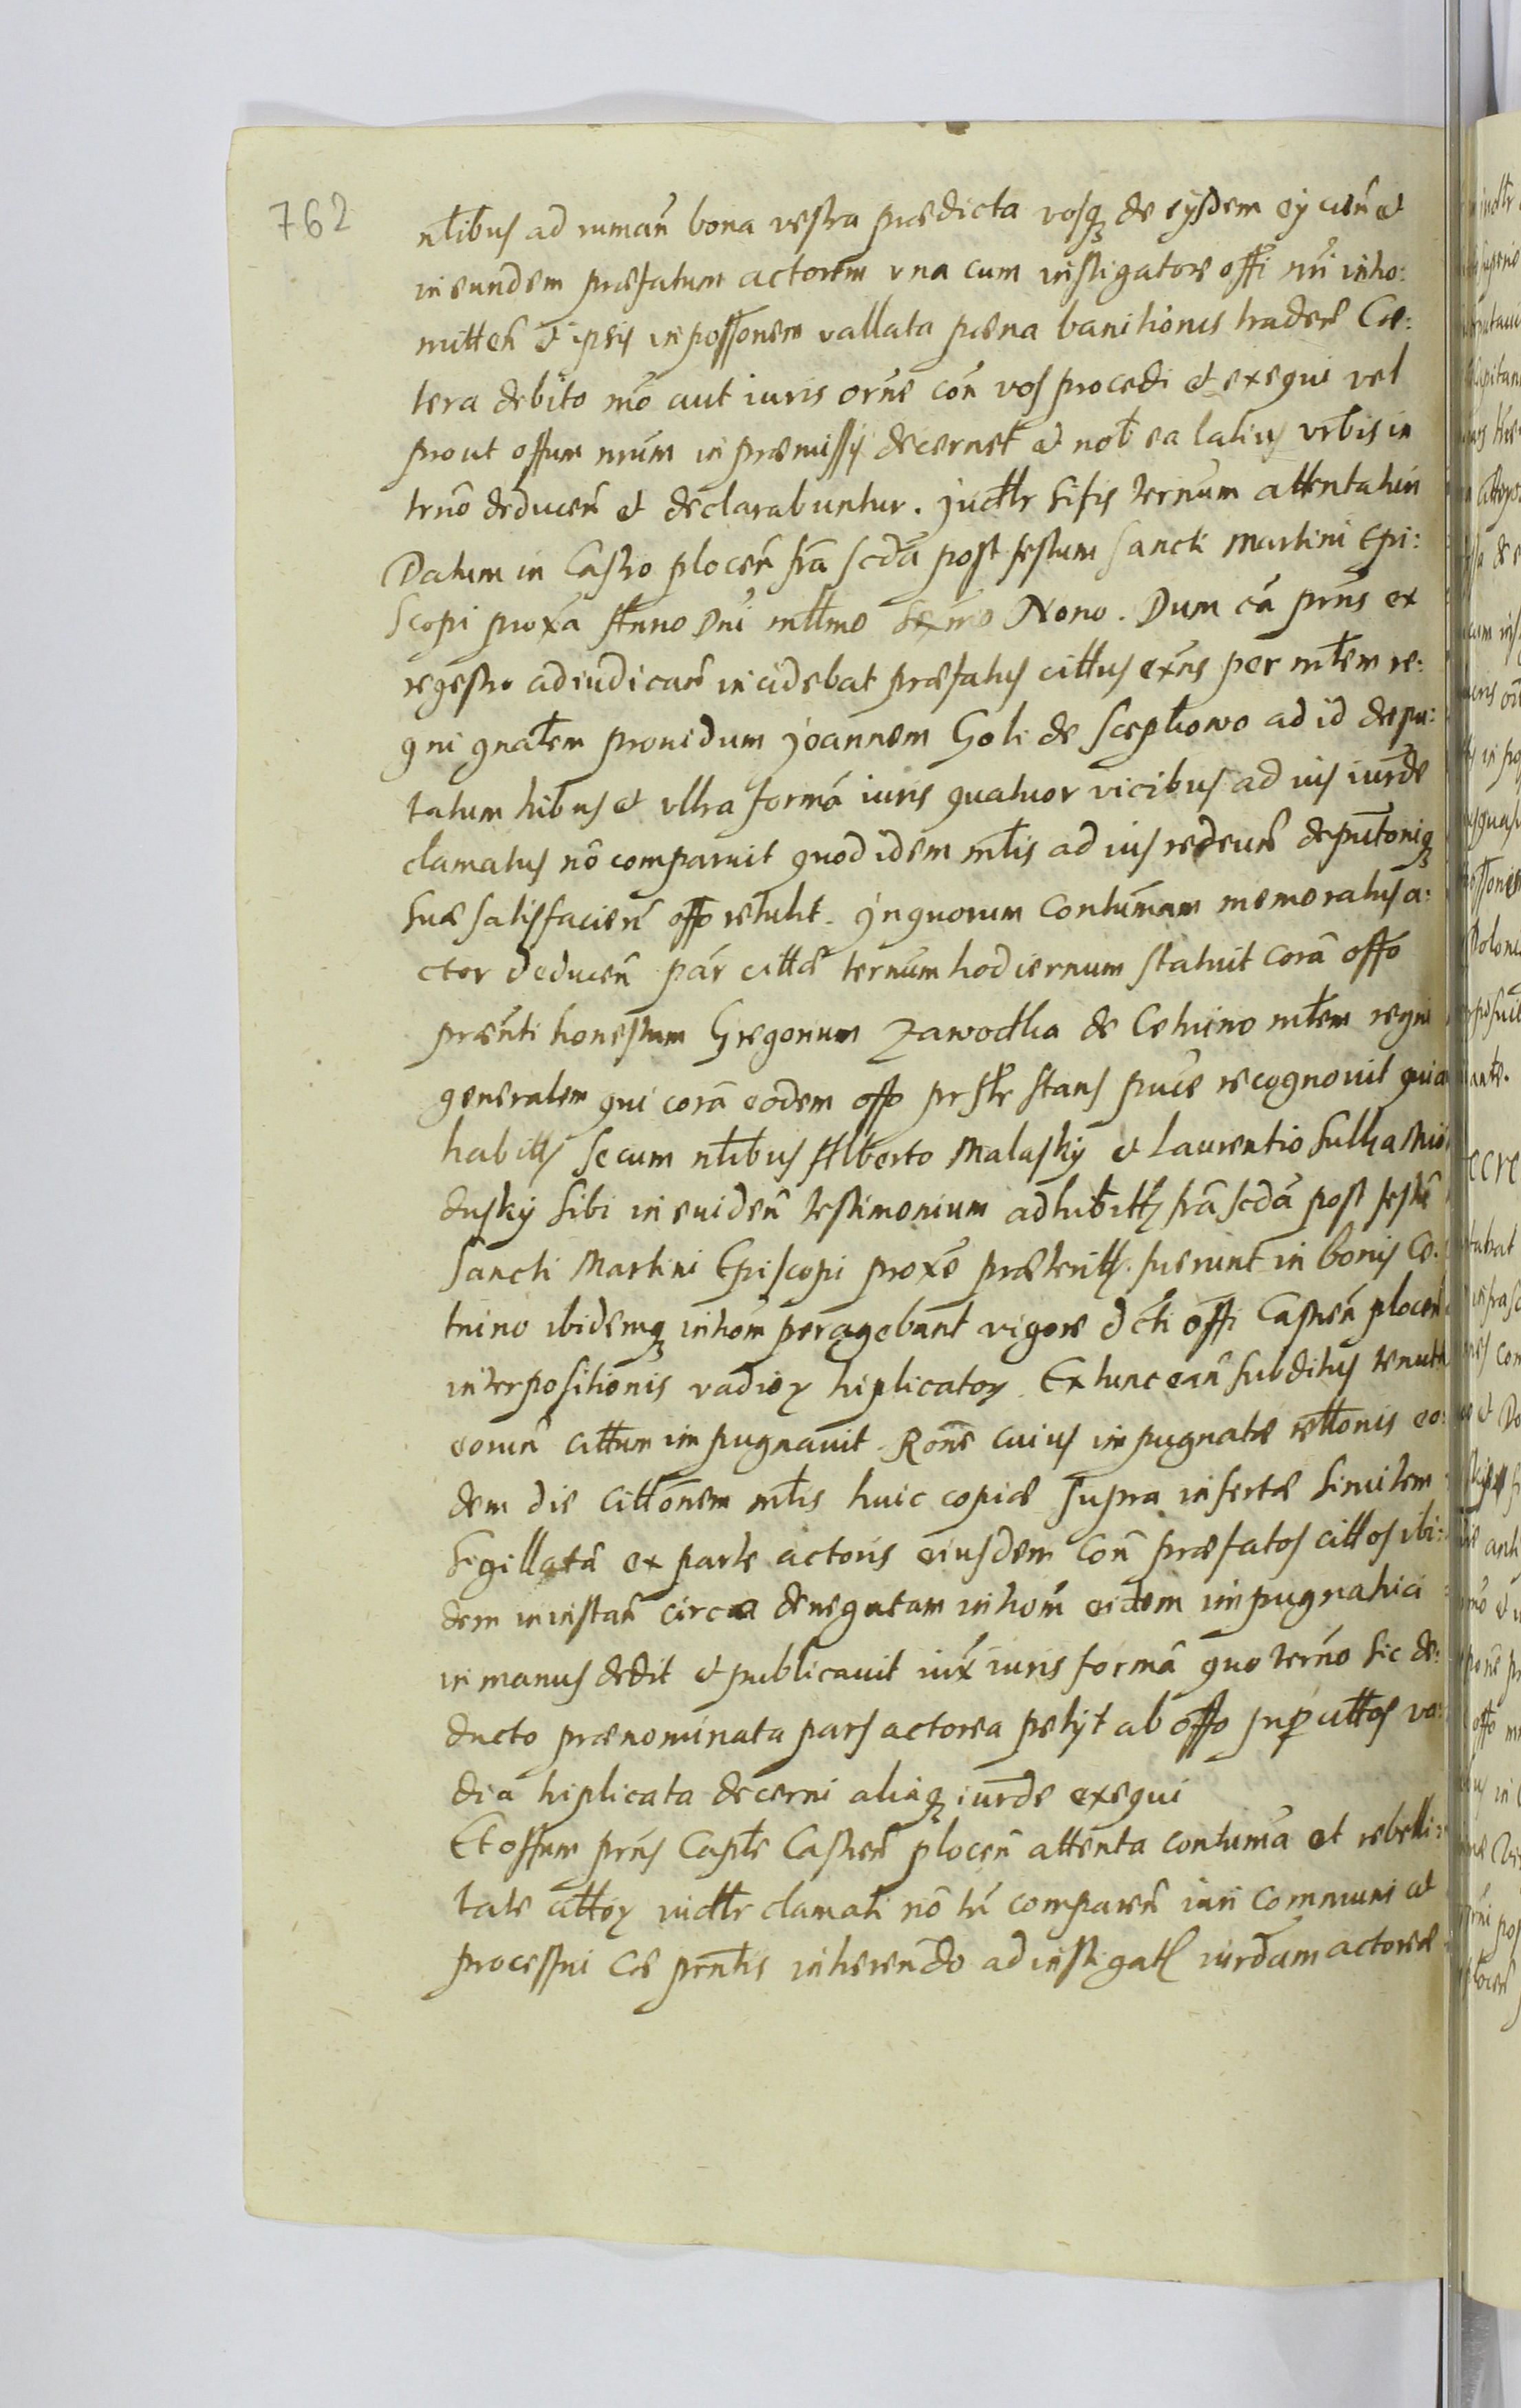 762
nłibus ad ruman̄ bona vestra prædicta vosq₃ de eysdem eÿcien̄ et
in eundem præfatum actorem vna cum instigatore offi nr̄i intro:
mitten̄ et ipsis in possonem vallata pæna banitionis tradere Cæ:
tera debito mō aut iuris orn̄e con̄ vos procedi et exequi vel
prout offum nr̄um in præmissis decernet et nob̄ ea latius vrbis in
trn̄o deducen̄ et declarabuntur. Judłr sitis ternum attentaturi
Datum in Castro plocen̄ fr̄a scd̄a post festum Sancti Martini Epi:
scopi prox̄a Anno Dni młłmo Sex̄mo Nono. Dum cā prn̄s ex
regestro adiudican̄ incidebat præfatus cittus exn̄s per młem re:
gni gnałem prouidum Joannem Goli de Sceptowo ad id depu:
tatum tribus et vltra formā iuris quatuor vicibus ad ius iurde
clamatus nō comparuit quod idem młis ad ius redeun̄ deputoniq₃
suæ satisfacien̄ offo retulit. In quorum contumam memoratus a:
ctor deducen̄ par cittæ ternum hodiernum statuit corā offo
præn̄ti honestum Gregorium Zawodtka de Cetnino młem regni
generalem qui corā eodem offo prsłr stans puce recognouit quia
habitts secum nłibus Alberto Malusky et Laurentio Sulka Mio
dusky sibi in euiden̄ testimonium adhibitts fr̄a scd̄a post festū
Sancti Martini Episcopi proxe præteritts fuerunt in bonis Ce:
tnino ibidemq₃ introm̄ peragebant vigore dcti offi Castren̄ plocen̄
interpositionis vadioꝝ triplicatoꝝ. Ex tunc ean̄ subditus tenuta
eorun̄ cittum impugnauit. Rone cuius impugnatæ rettonis eo:
dem die cittonem młis huic copiæ supra insertæ similem
sigillatā ex parte actoris eiusdem con̄ præfatos cittos ibi:
dem in instan̄ circa denegatam introm̄ eidem impugnatrici
in manus dedit et publicauit iux̄ iuris formā quo tern̄o sic de:
ducto prænominata pars actorea petijt ab offo sup̱ cittos va:
dia triplicata decerni aliaq₃ iurde exequi
Et offum prn̄s Capłe Castren̄ plocen̄ attenta contuma et rebelli:
tate cittoꝝ iudłr clamati nō tn̄ comparen̄ iuri communi et
processui cæ prn̄tis inherendo ad instigat̄ iurdam actoreæ